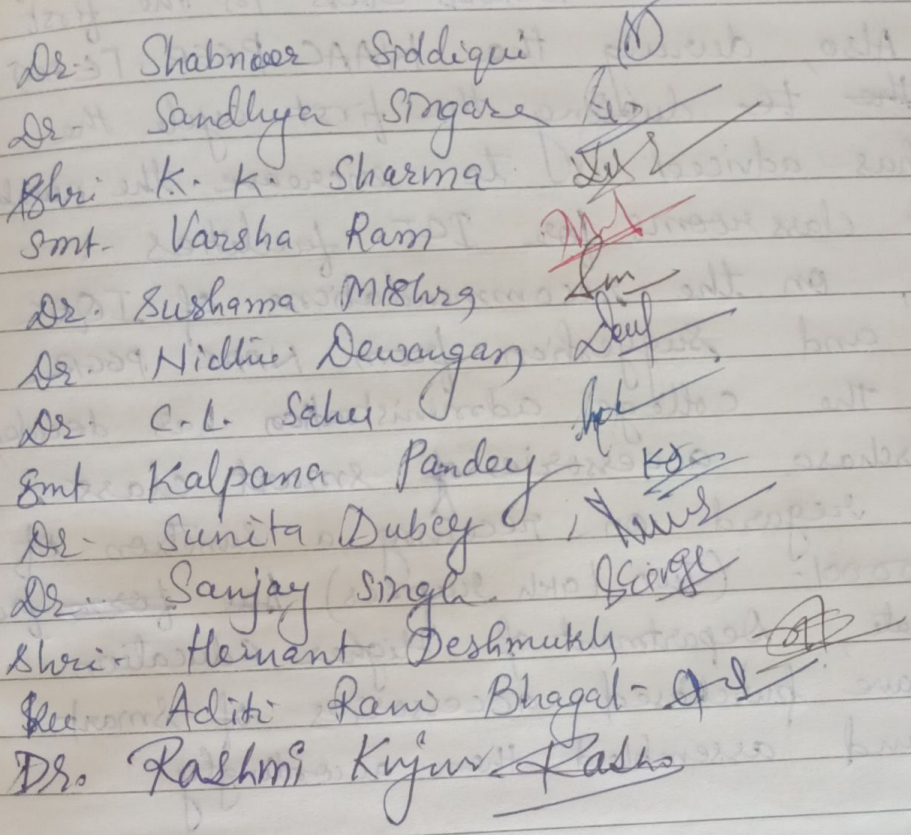 Dr. Shabnoor Siddiqui
Dr. Sandhya Singare
Shri K. K. Sharma
Smt. Varsha Ram
Dr. Sushama Mishra
Dr. Nidhi Dewangan
Dr. C.L. Sahu
Smt Kalpana Pandey KP
Dr. Sunita Dubey
Dr. Sanjay Singh
Shri. Hemant Deshmukh
Ku Aditi Rani Bhagat
Dr. Rashmi Kujur Rash